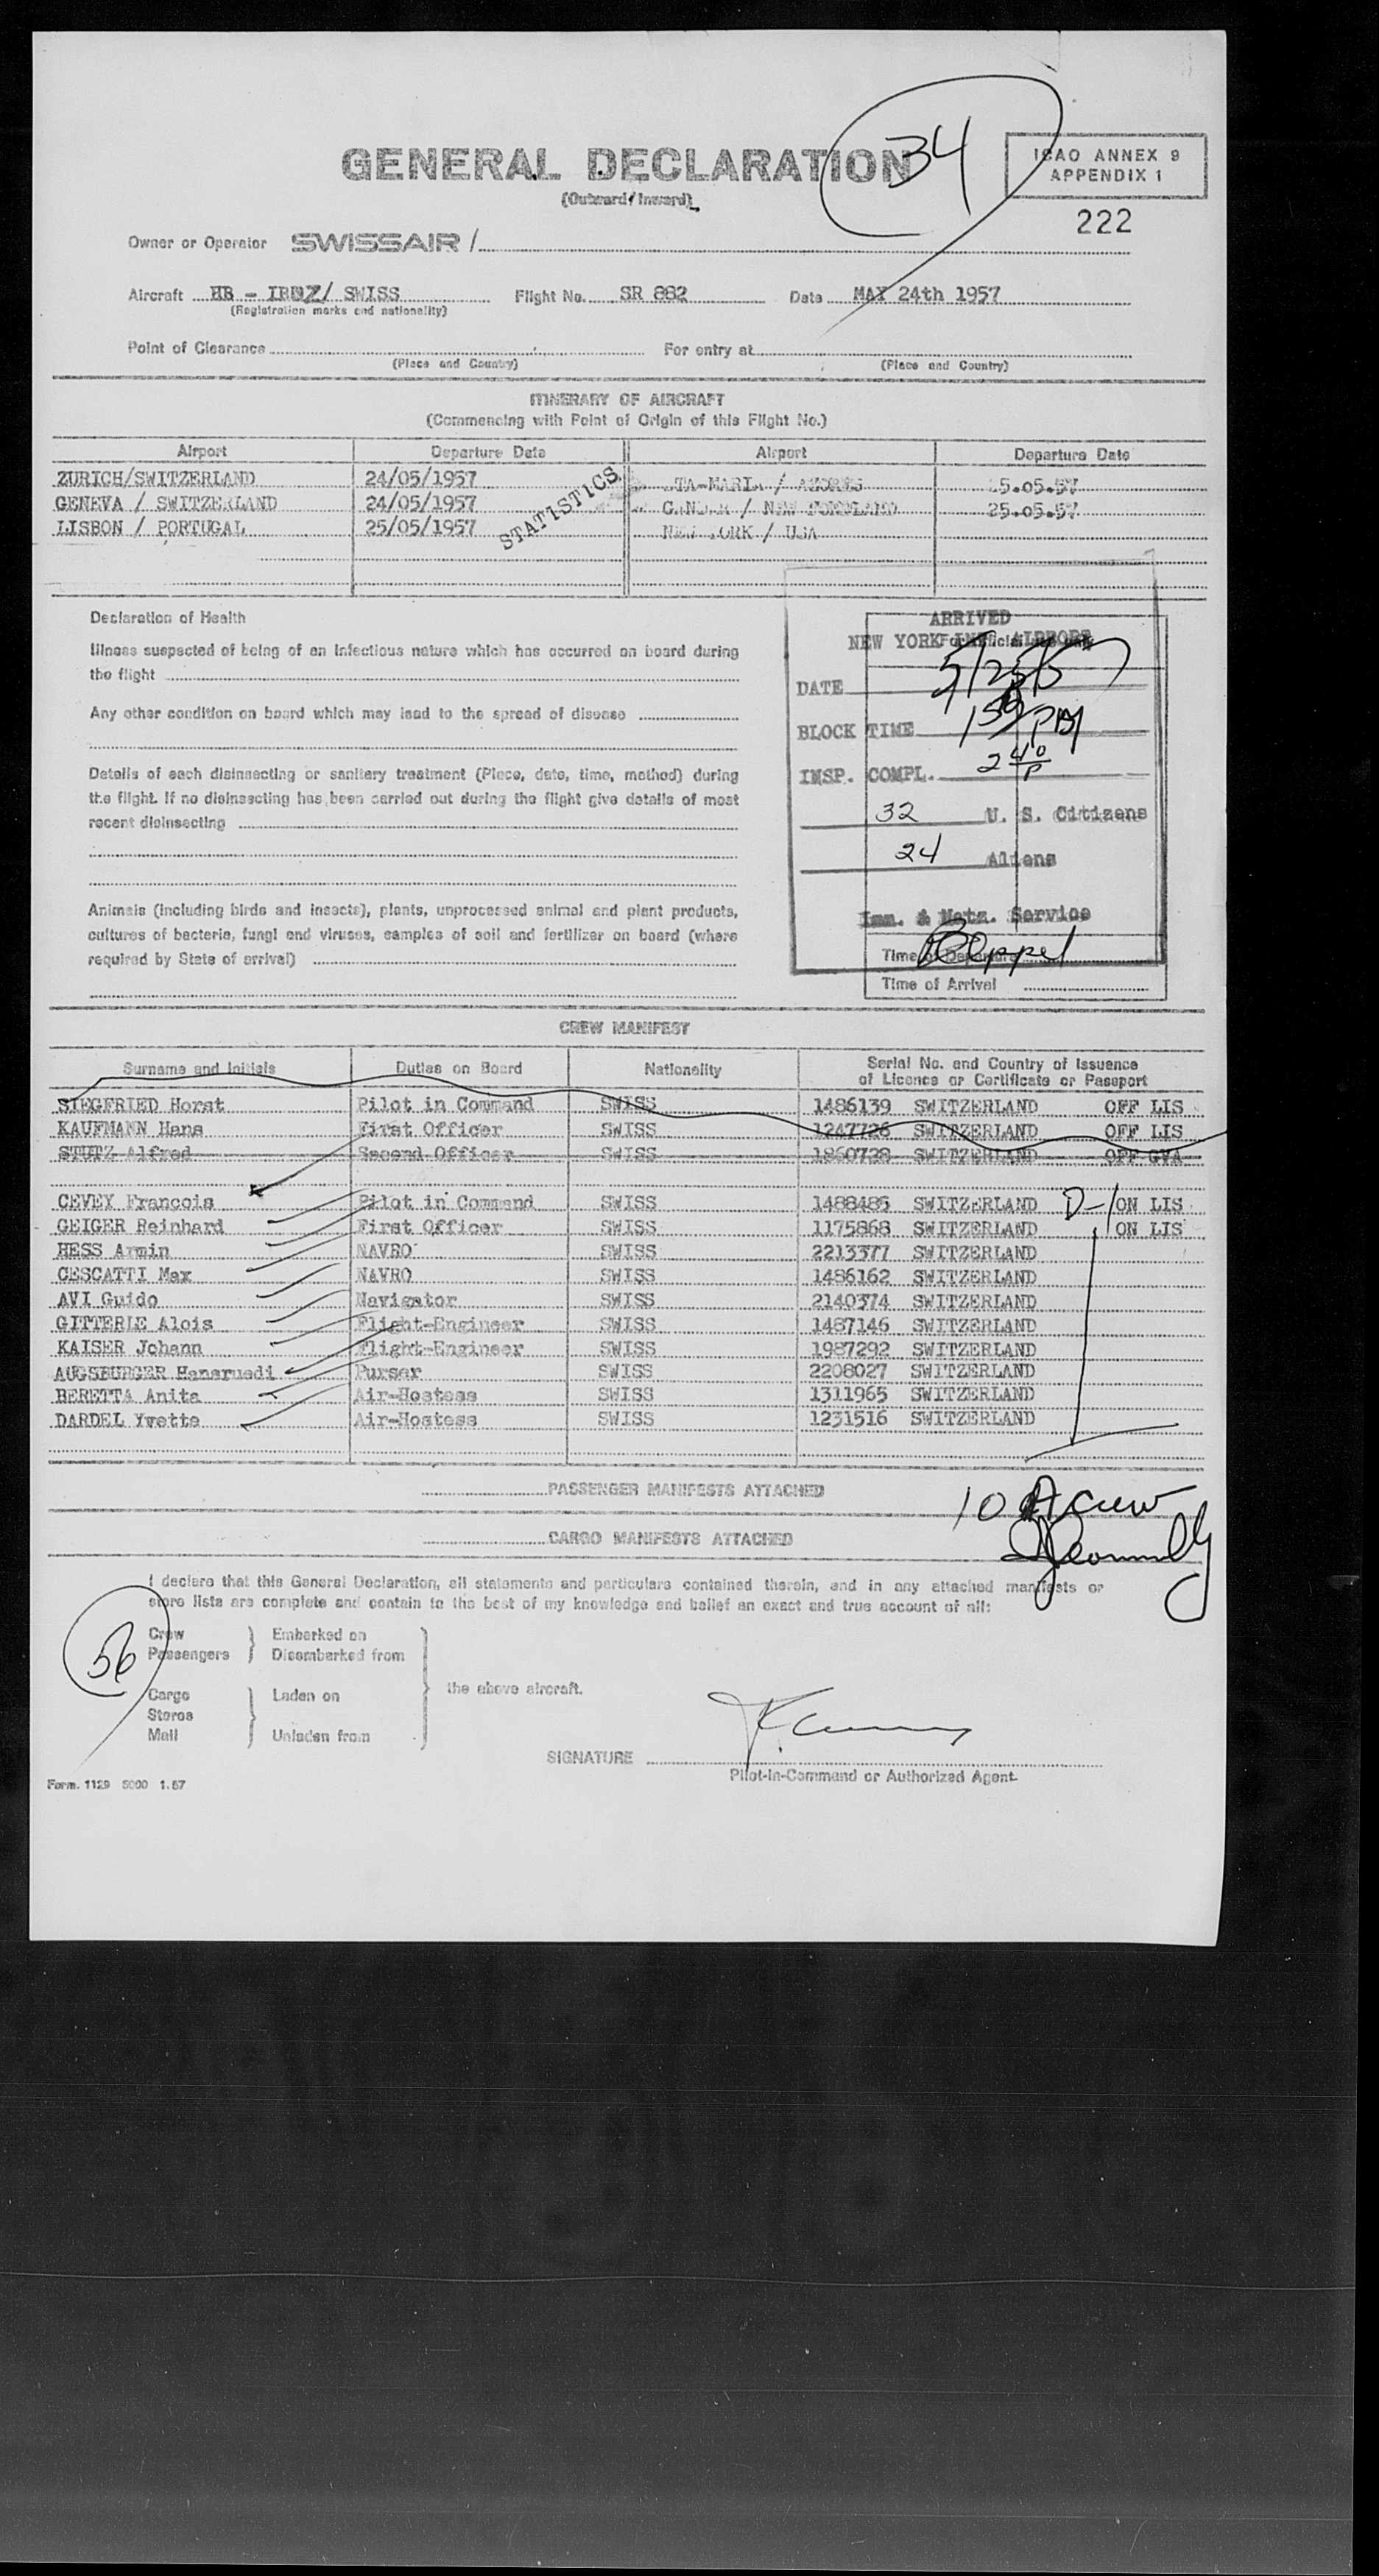 34
GENERAL DECLARATION
(Outward/Inward)
ICAO ANNEX 9
APPENDIX 1
222
Owner or Operator SWISSAIR /
Aircraft HB - / SWISS Flight No. SR 882 Date MAY 24th 1957
(Registration marks and nationality)
Point of Clearance For entry at
(Place and Country) (Place and Country)
ITINERARY OF AIRCRAFT
(Commencing with Point of Origin of this Flight No.)
Airport Departure Date Airport Departure Date
ZURICH/SWITZERLAND 24/05/1957 TA-MARIA / AZORES 5.05.57
GENEVA / SWITZERLAND 24/05/1957 GANDER / NEW FOUNDLAND 25.05.57
LISBON / PORTUGAL 25/05/1957 NEW YORK / USA
STATISTICS
Declaration of Health
Illness suspected of being of an infectious nature which has occurred on board during
the flight
Any other condition on board which may lead to the spread of disease
Details of each disinsecting or sanitary treatment (Place, date, time, method) during
the flight. If no disinsecting has been carried out during the flight give details of most
recent disinsecting
Animals (including birds and insects), plants, unprocessed animal and plant products,
cultures of bacteria, fungi and viruses, samples of soil and fertilizer on board (where
required by State of arrival)
ARRIVED
NEW YORK INT. AIRPORT
For official use only
DATE 5/25/57
BLOCK TIME PM
INSP. COMPL. 2 40 P
32 U. S. Citizens
24 Aliens
Imm. & Natz. Service
Time of Departure
Time of Arrival
CREW MANIFEST
Surname and Initials Duties on Board Nationality Serial No. and Country of Issuance
of Licence or Certificate or Passport
SIEGFRIED Horst Pilot in Command SWISS 1486139 SWITZERLAND OFF LIS
KAUFMANN Hans First Officer SWISS 1247726 SWITZERLAND OFF LIS
STUTZ Alfred Second Officer SWISS 1860728 SWITZERLAND OFF GVA
CEVEY Francois Pilot in Command SWISS 1488485 SWITZERLAND D-1 ON LIS
GEIGER Reinhard First Officer SWISS 1175868 SWITZERLAND ON LIS
HESS Armin NAVRO SWISS 2213377 SWITZERLAND
CESCATTI Max NAVRO SWISS 1486162 SWITZERLAND
AVI Guido Navigator SWISS 2140374 SWITZERLAND
GITTERLE Alois Flight-Engineer SWISS 1487146 SWITZERLAND
KAISER Johann Flight-Engineer SWISS 1987292 SWITZERLAND
AUGSBURGER Hansruedi Purser SWISS 2208027 SWITZERLAND
BERETTA Anita Air-Hostess SWISS 1311965 SWITZERLAND
DARDEL Yvette Air-Hostess SWISS 1231516 SWITZERLAND
PASSENGER MANIFESTS ATTACHED
10 A crew
CARGO MANIFESTS ATTACHED
I declare that this General Declaration, all statements and particulars contained therein, and in any attached manifests or
store lists are complete and contain to the best of my knowledge and belief an exact and true account of all:
56
Crew Embarked on
Passengers Disembarked from
the above aircraft.
Cargo Laden on
Stores
Mail Unladen from
SIGNATURE
Pilot-in-Command or Authorized Agent
Form. 1129 5000 1.57